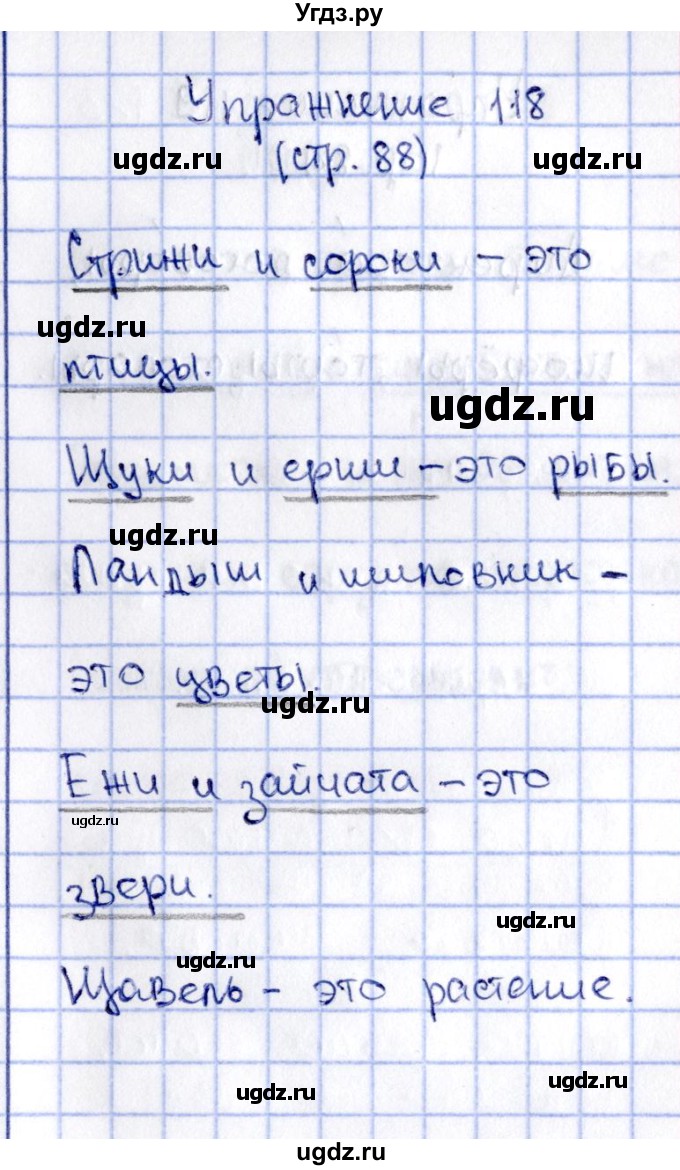 Угдз.ру
Упражнение 118
ugdz.ru (стр. 88) ugdz.ru
Стрижи и сороки – это
ugdz.ru
птицы.
ugdz.ru
Щуки и ерши – это рыбы.
ugdz.ru
Ландыш и шиповник –
это цветы.
ugdz.ru
Ежи и зайчата – это
ugdz.ru
звери.
ugdz.ru
ugdz.ru
Щавель – это растение.
ugdz.ru
ugdz.ru
ugdz.ru